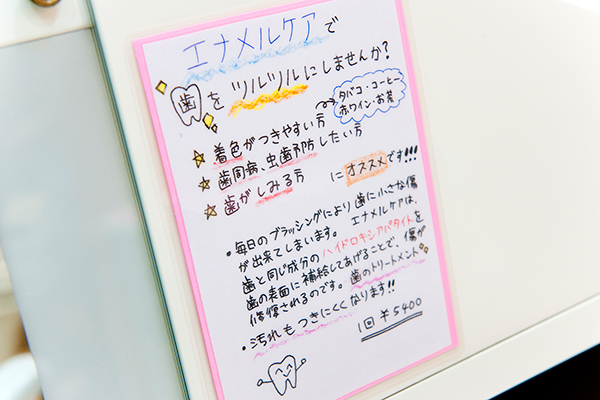 エナメルケアで
歯をツルツルにしませんか?
タバコ・コーヒー
赤ワイン・お茶
☆着色がつきやすい方
☆歯周病、虫歯予防したい方
☆歯がしみる方 にオススメです!!!
・毎日のブラッシングにより歯に小さな傷
が出来てしまいます。エナメルケアは、
歯と同じ成分のハイドロキシアパタイトを
歯の表面に補給してあげることで、傷が
修復されるのです。歯のトリートメント
・汚れもつきにくくなります!!
1回 ¥5400